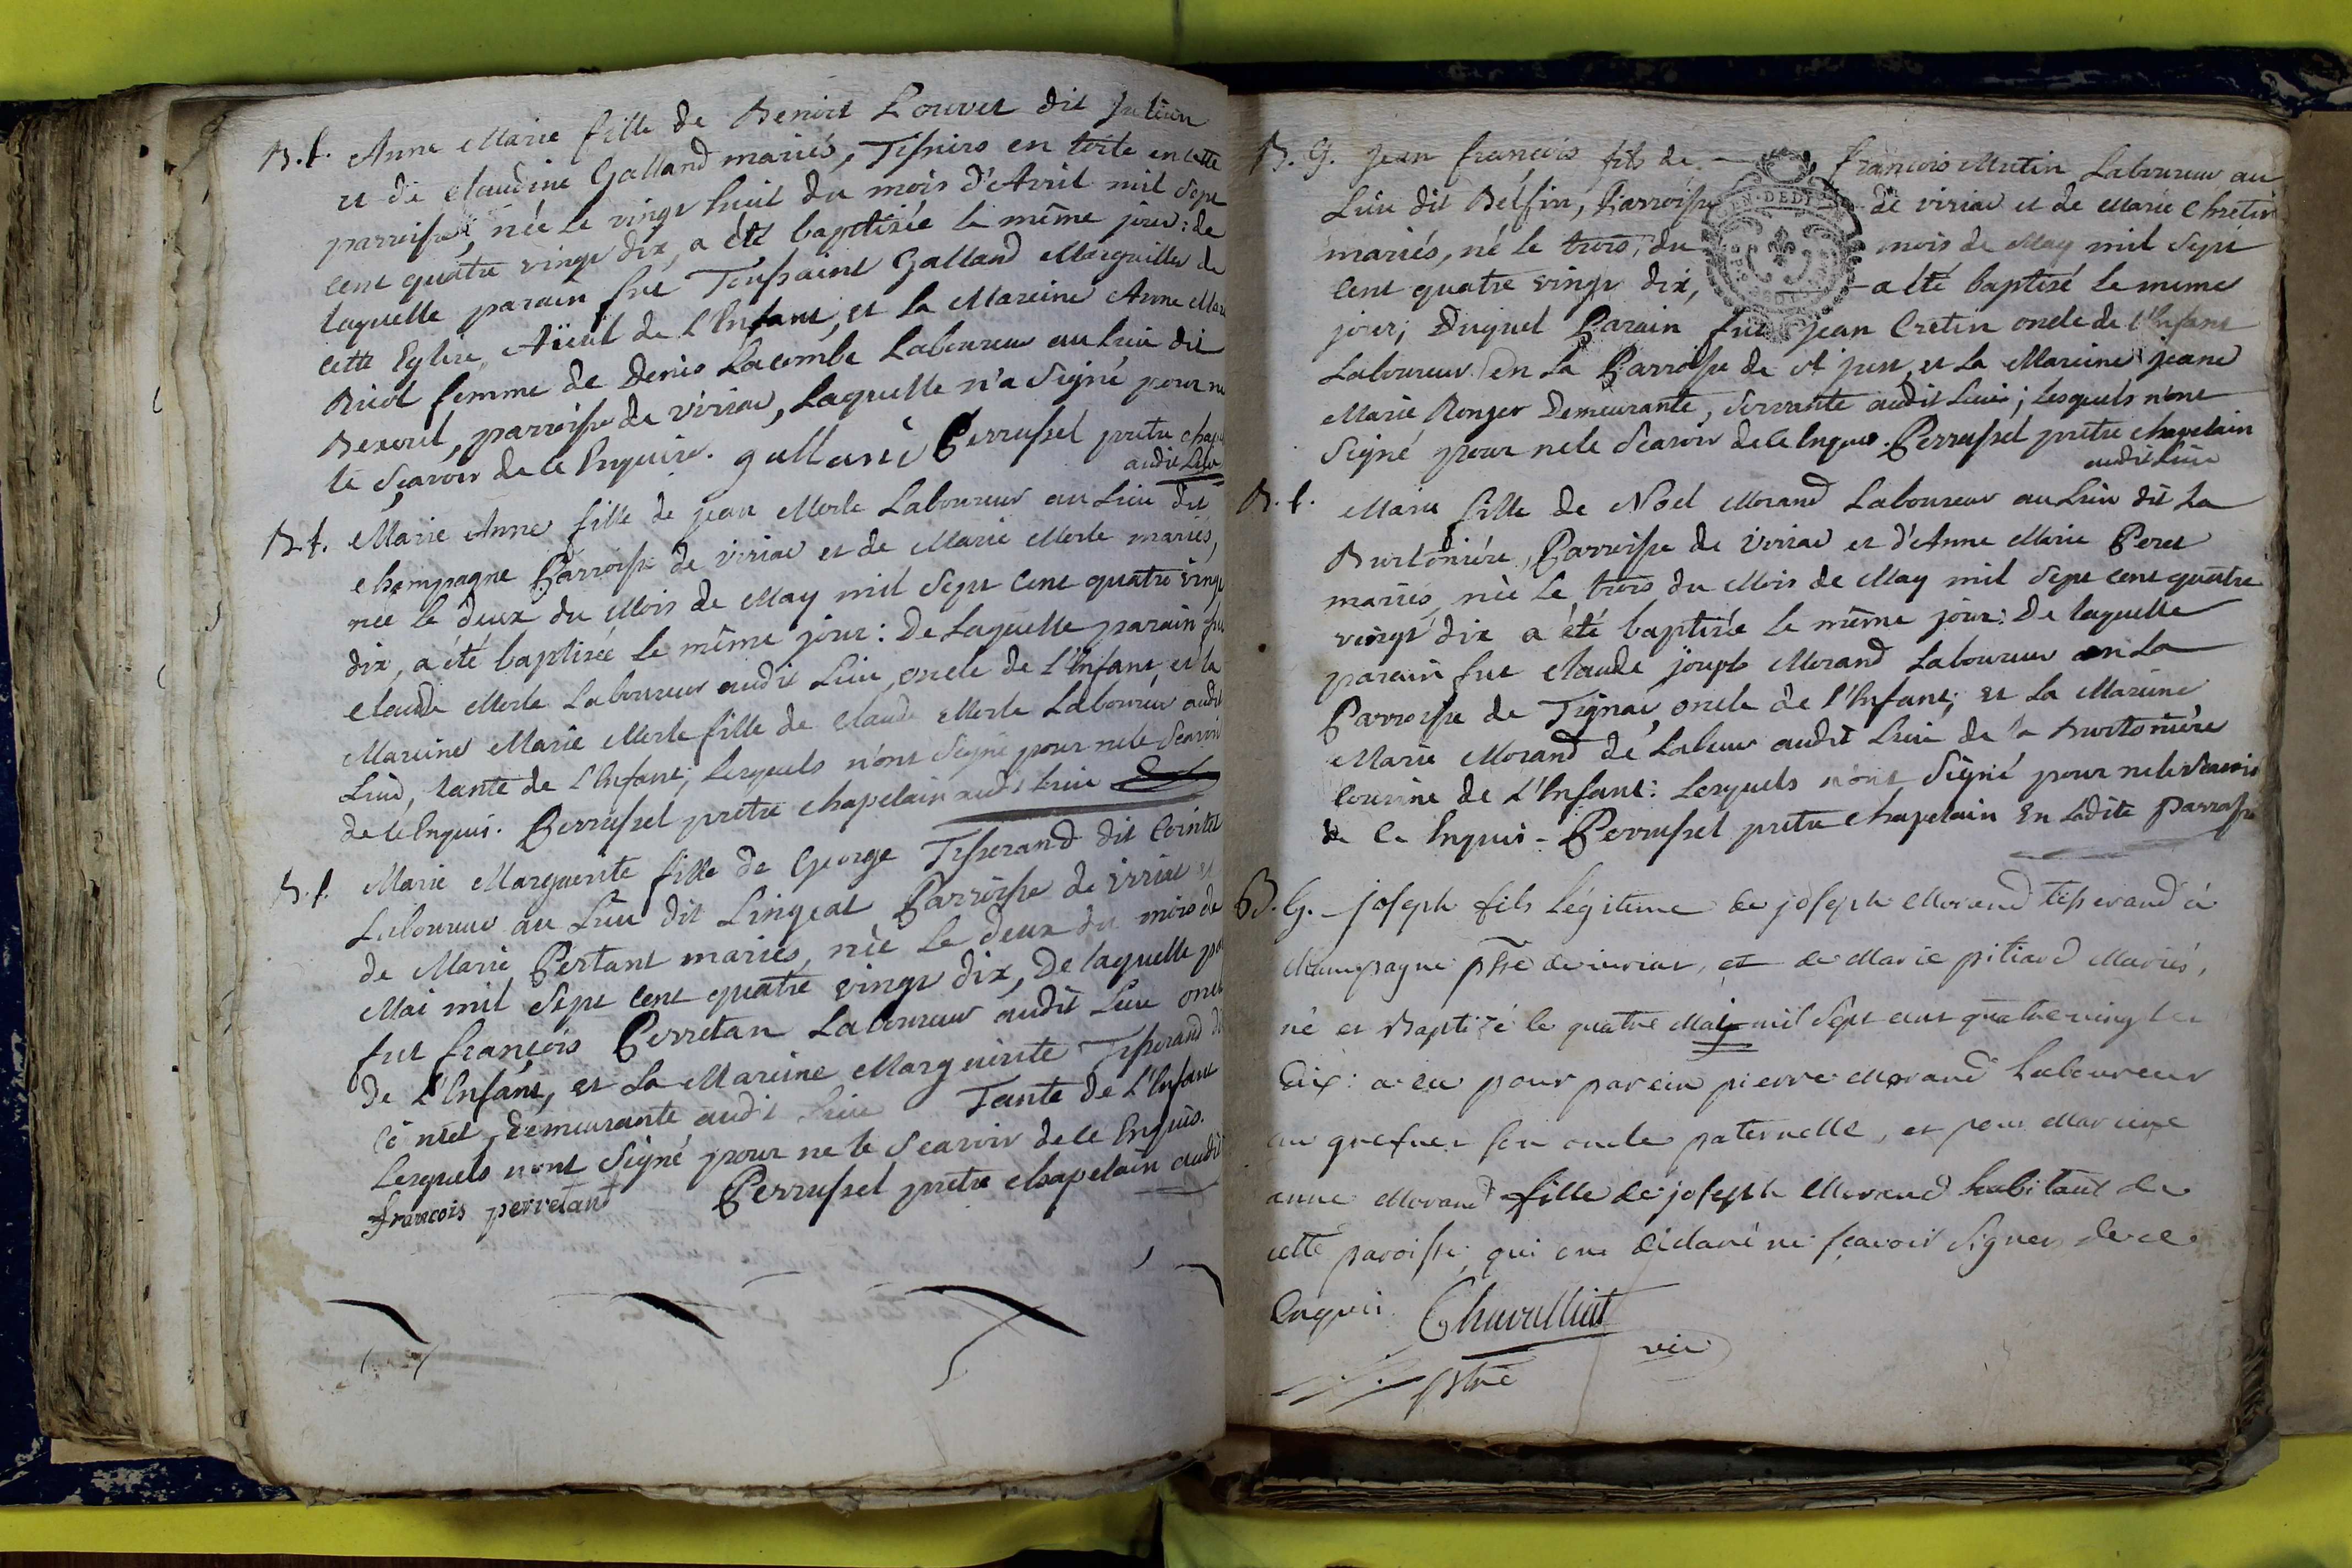 B. f. Anne Marie fille de Benoit Louvet dit Julien
et de Claudine Galland mariés, Tissiers en toile en cette
parroisse, née le vingt huit du mois d'Avril mil sept
cent quatre vingt dix, a été baptisée le même jour : de
laquelle parain fut Toussaint Galland Marguillier de
cette Eglise, Aïeul de l'Enfant, et la Mareine Anne Marie
femme de Denis Lacombe Laboureur au Lieu dit
parroisse de viriac, Laquelle n'a signé pour ne
le Scavoir de ce Enquise. galland Perrussel pretre chap
audit Lieu
B. f. Marie Anne fille de jean Merle Laboureur au Lieu dit
champagne Parroisse de viriac et de Marie Merle mariés,
née le deux du Mois de May mil Sept cent quatre vingt
dix, a été baptisée le même jour : De Laquelle parain fut
claude Merle Laboureur audit Lieu, oncle de l'Enfant, et la
Mareine Marie Merle fille de claude Merle Laboureur audit
Lieu, tante de l'Enfant; Lesquels n'ont Signé pour ne le Scavoir
de ce Enquis. Perrussel pretre chapelain audit Lieu
B. f. Marie Marguerite fille de George Tisserand dit Cointet
Laboureur au Lieu dit Lingeat Parroisse de viriac et
de Marie Pertant mariés, née Le deux du mois de
Mai mil Sept cent quatre vingt dix, De laquelle pa
fut françois Perretan Laboureur audit Lieu oncle
de l'Enfant, et La Mareine Marguerite Tisserand di
Cointet, demeurante audit Lieu Tante de L'Enfant
Lesquels n'ont Signé pour ne le Scavoir de ce Enquis.
francois perretant Perrussel pretre chapelain audit
B. G. Jean françois fils de françois Mutin Laboureur au
Lieu dit Belfin, Parroisse de viriac et de Marie Chretin
mariés, né le trois, du mois de May mil Sept
Cent quatre vingt dix, a été baptisé le meme
jour; Duquel Parain fut jean Cretin oncle de l'Enfant
Laboureur en La Parroisse de st just, et La Mareine jeane
Marie Ronger Demeurante, Servante audit Lieu; Lesquels n'ont
Signé pour ne le Scavoir de ce Enquis. Perrussel pretre chapelain
audit Lieu
B. f. Marie fille de Noël Morand Laboureur au Lieu dit La
Burtonière, Parroisse de viriac et d'Anne Marie Peret
mariés, née Le trois du Mois de May mil Sept cent quatre
vingt dix a été baptisée le même jour : De laquelle
parain fut claude joseph Morand Laboureur en La
Parroisse de Tignac, oncle de l'Enfant; et La Mareine
Marie Morand de Labeur audit Lieu de la Burtonière
Cousine de L'Enfant : Lesquels n'ont Signé pour ne le Scavoir
de ce Enquis - Perrussel pretre chapelain En Ladite Parroisse
B. G. joseph fils légitime de joseph Morand tisserand à
champagne psse de viriac, et de Marie pitiard Mariés,
né et Baptizé le quatre Mai mil sept cent quatre vingt et
dix : a eu pour parein pierre Morand Laboureur
au son oncle paternelle, et pour Mareine
anne Morand fille de joseph Morand habitant de
cette paroisse, qui ont déclaré ne scavoir Signer de ce
Enquis. Chavalliat
ptre vic